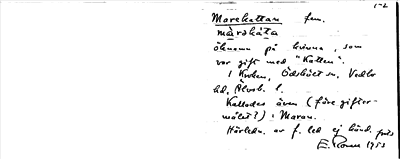 1-2
Marekattan fem.
màrəkáta
öknamn på kvinna, som
var gift med "Katten".
I Kroken, Ödskölts sn, Vedbo
hd, Älvsb. l.
Kallades även (före gifter-
målet?): Maran.
Härledn. av f. led ej känd.